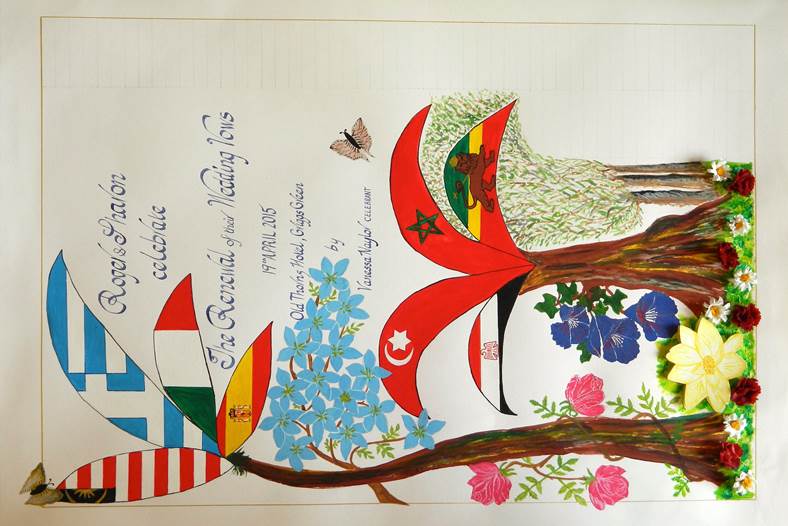 Roger & Sharon
celebrate
The Renewal of their Wedding Vows
19TH APRIL 2015
Old Thorns Hotel, Griggs Green
by
Vanessa Naylor CELEBRANT